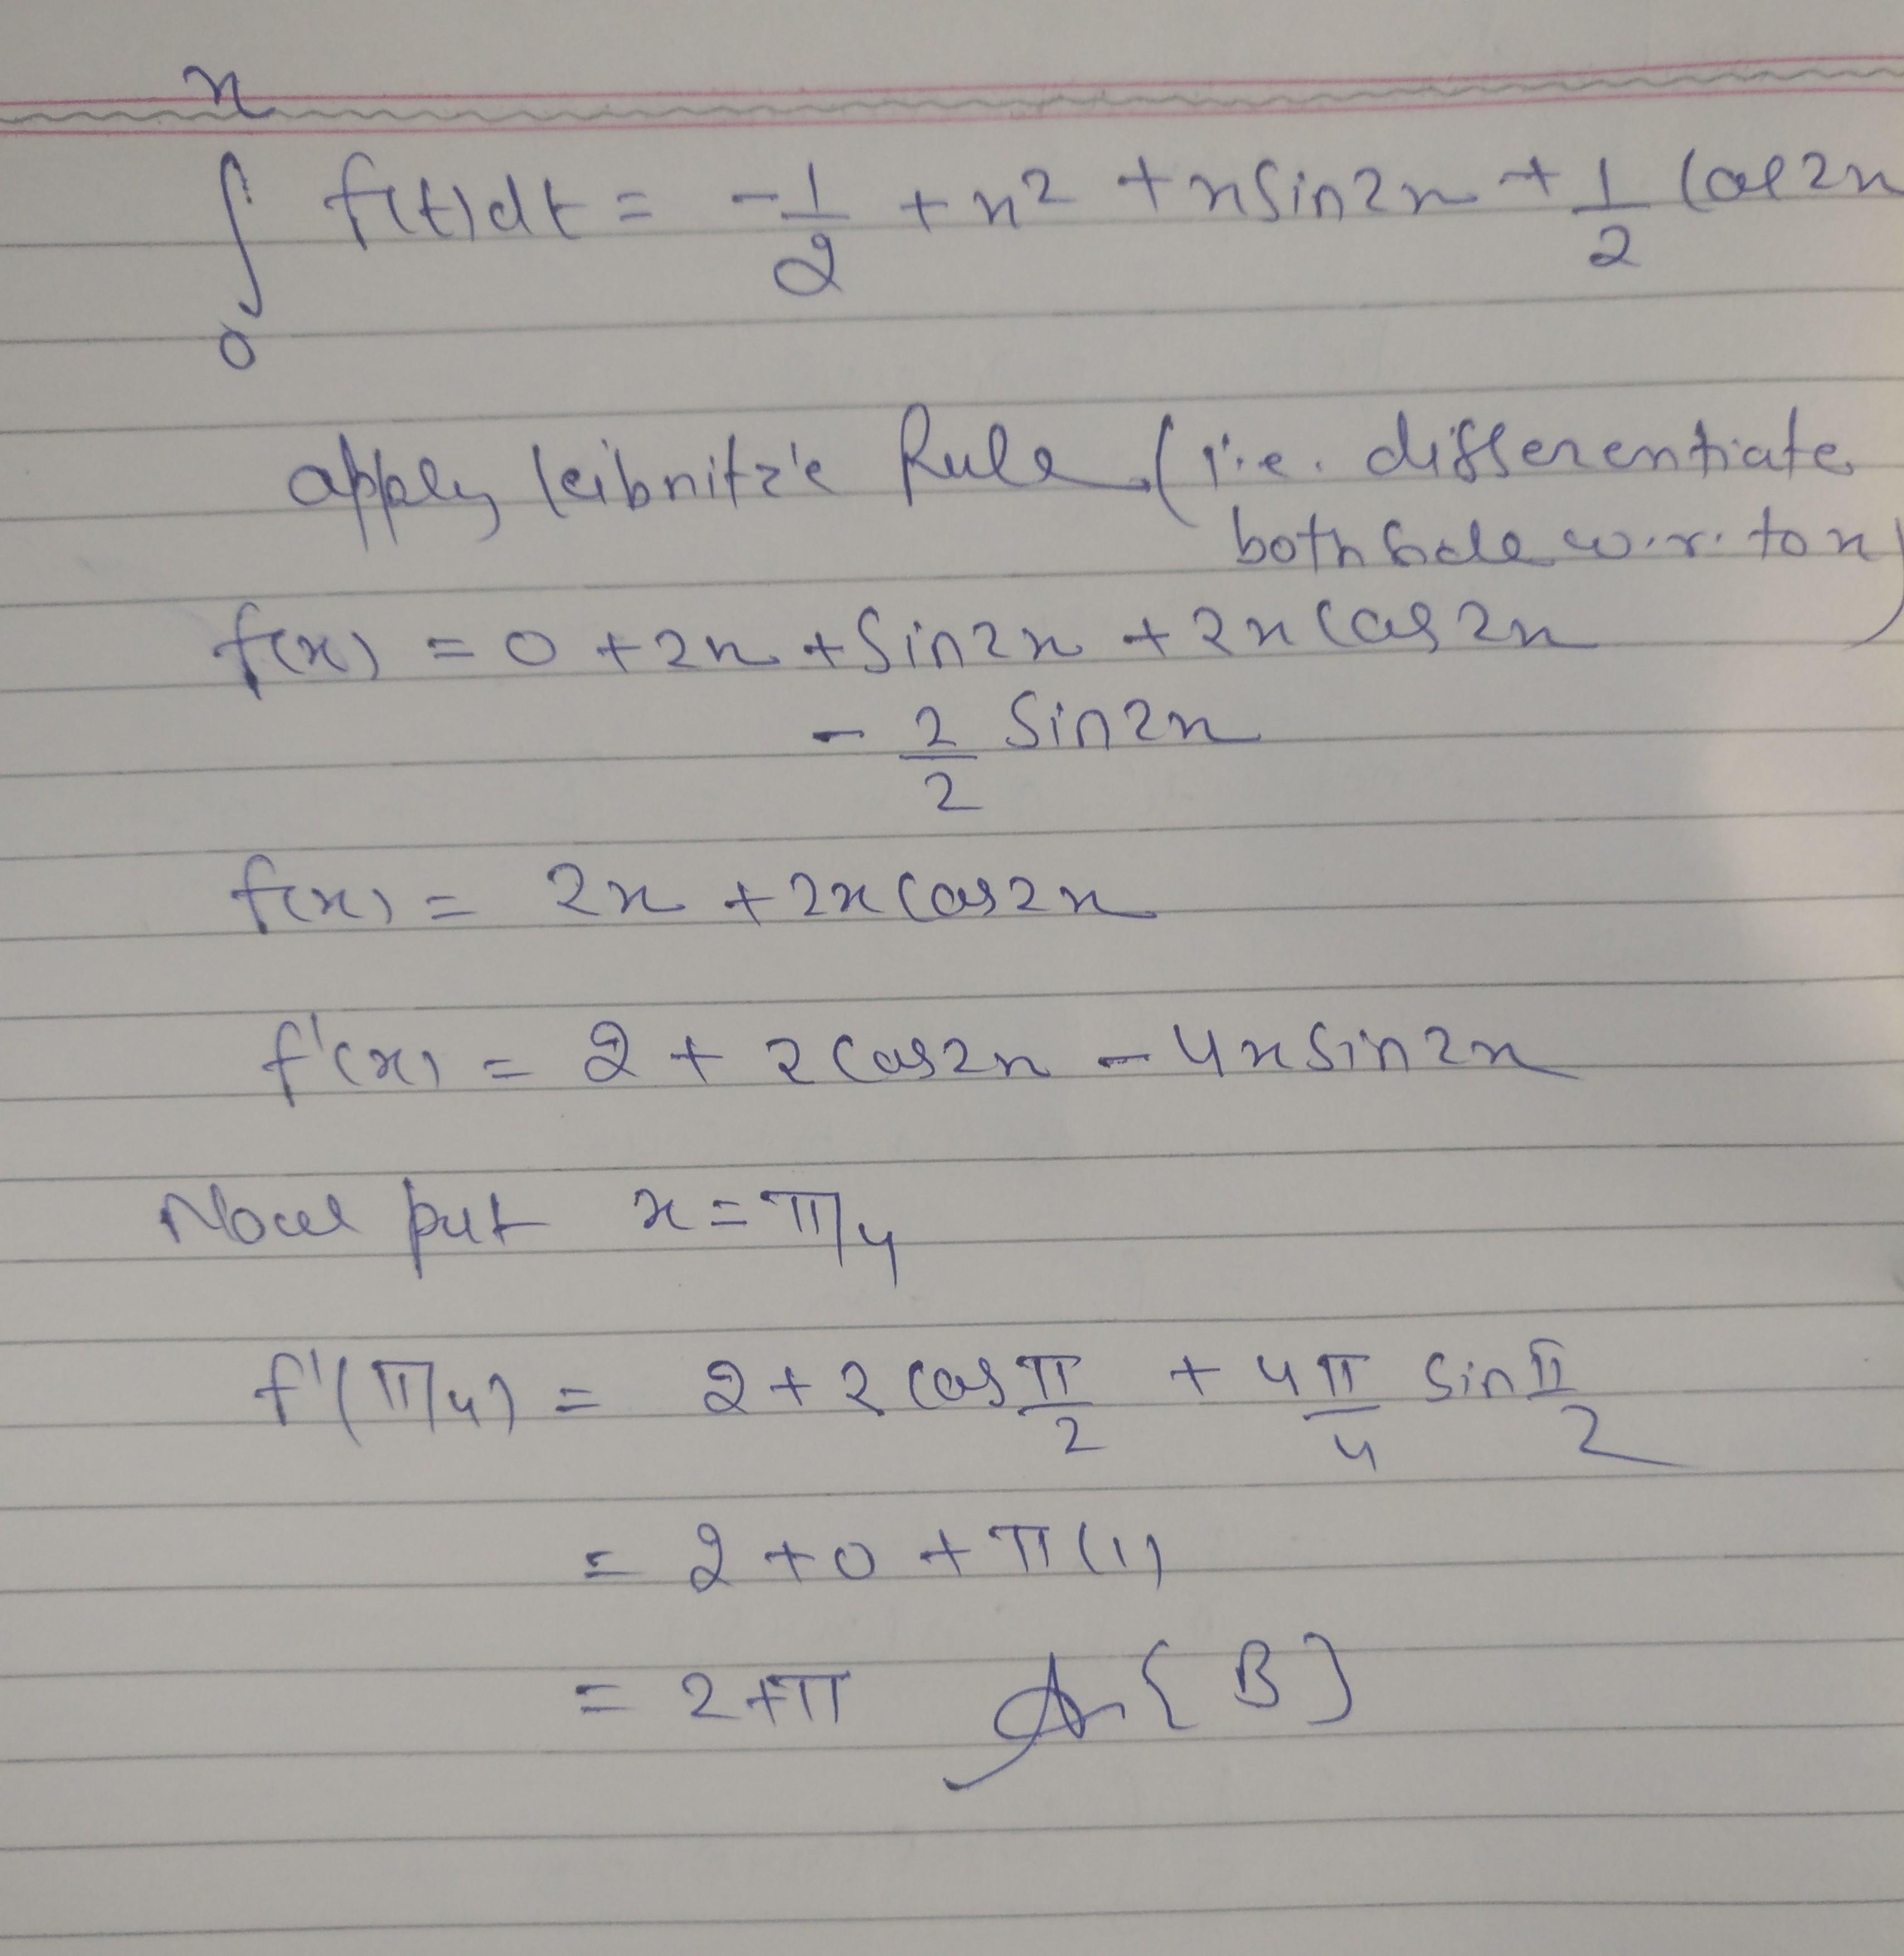 ∫₀ˣ f(t)dt = -1/2 + x² + x sin2x + 1/2 cos2x
apply leibnitz's Rule (i.e. differentiate
both side w.r. to x)
f(x) = 0 + 2x + Sin2x + 2x Cos2x
- 2/2 Sin2x
f(x) = 2x + 2x Cos2x
f'(x) = 2 + 2 Cos2x - 4x Sin2x
Now put x = π/4
f'(π/4) = 2 + 2 cos π/2 + 4π/4 sin π/2
= 2 + 0 + π(1)
= 2 + π A {B}